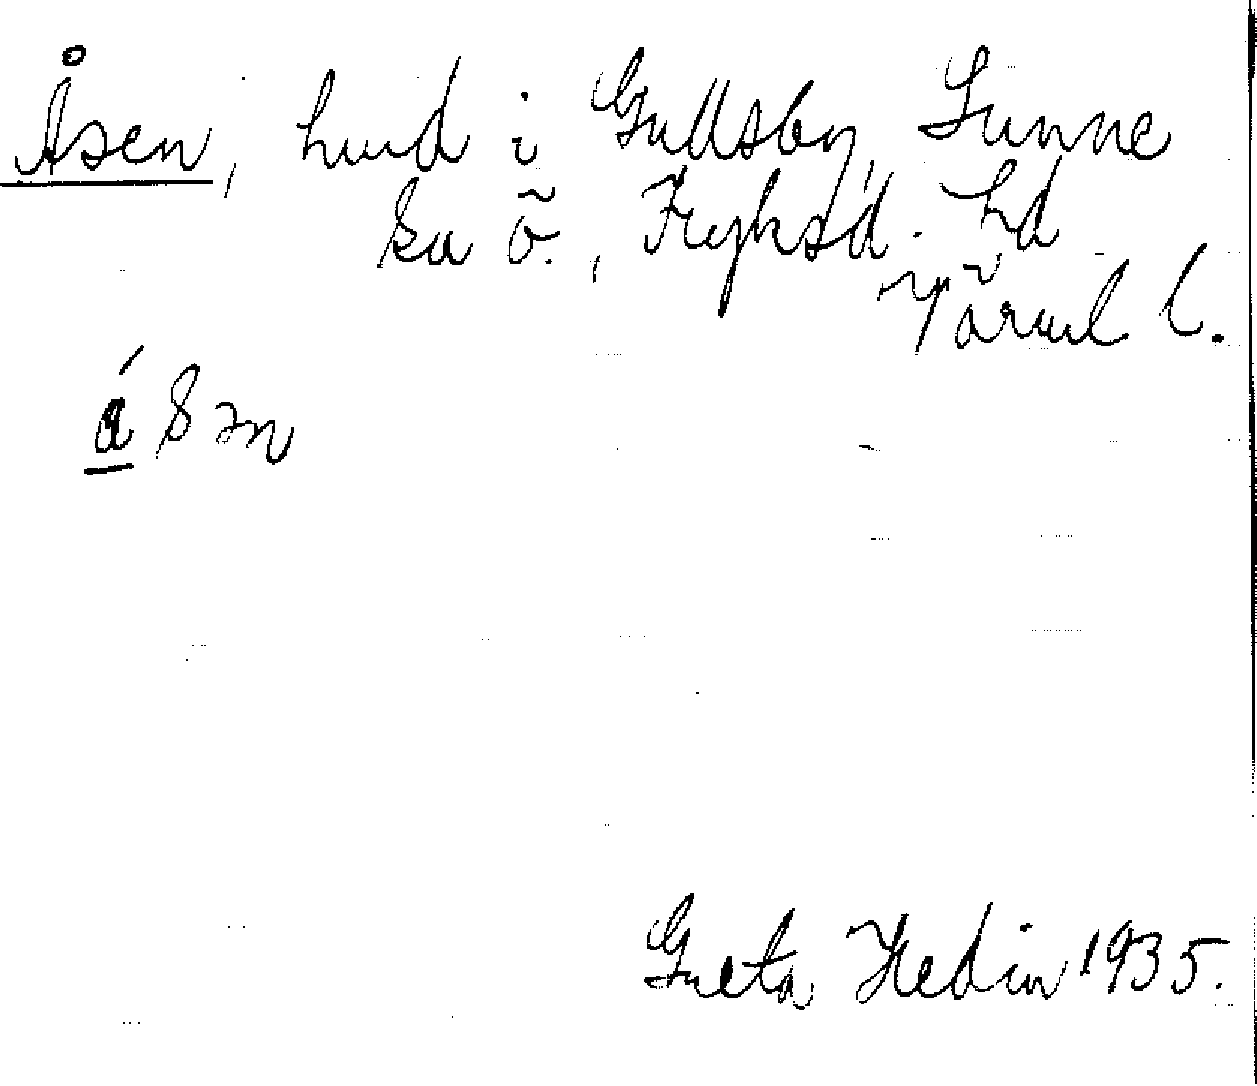 Åsen, hmd i Gullsby, Sunne
sn ö., Fryksd. hd
Värml l.
Greta Hedin 1935.